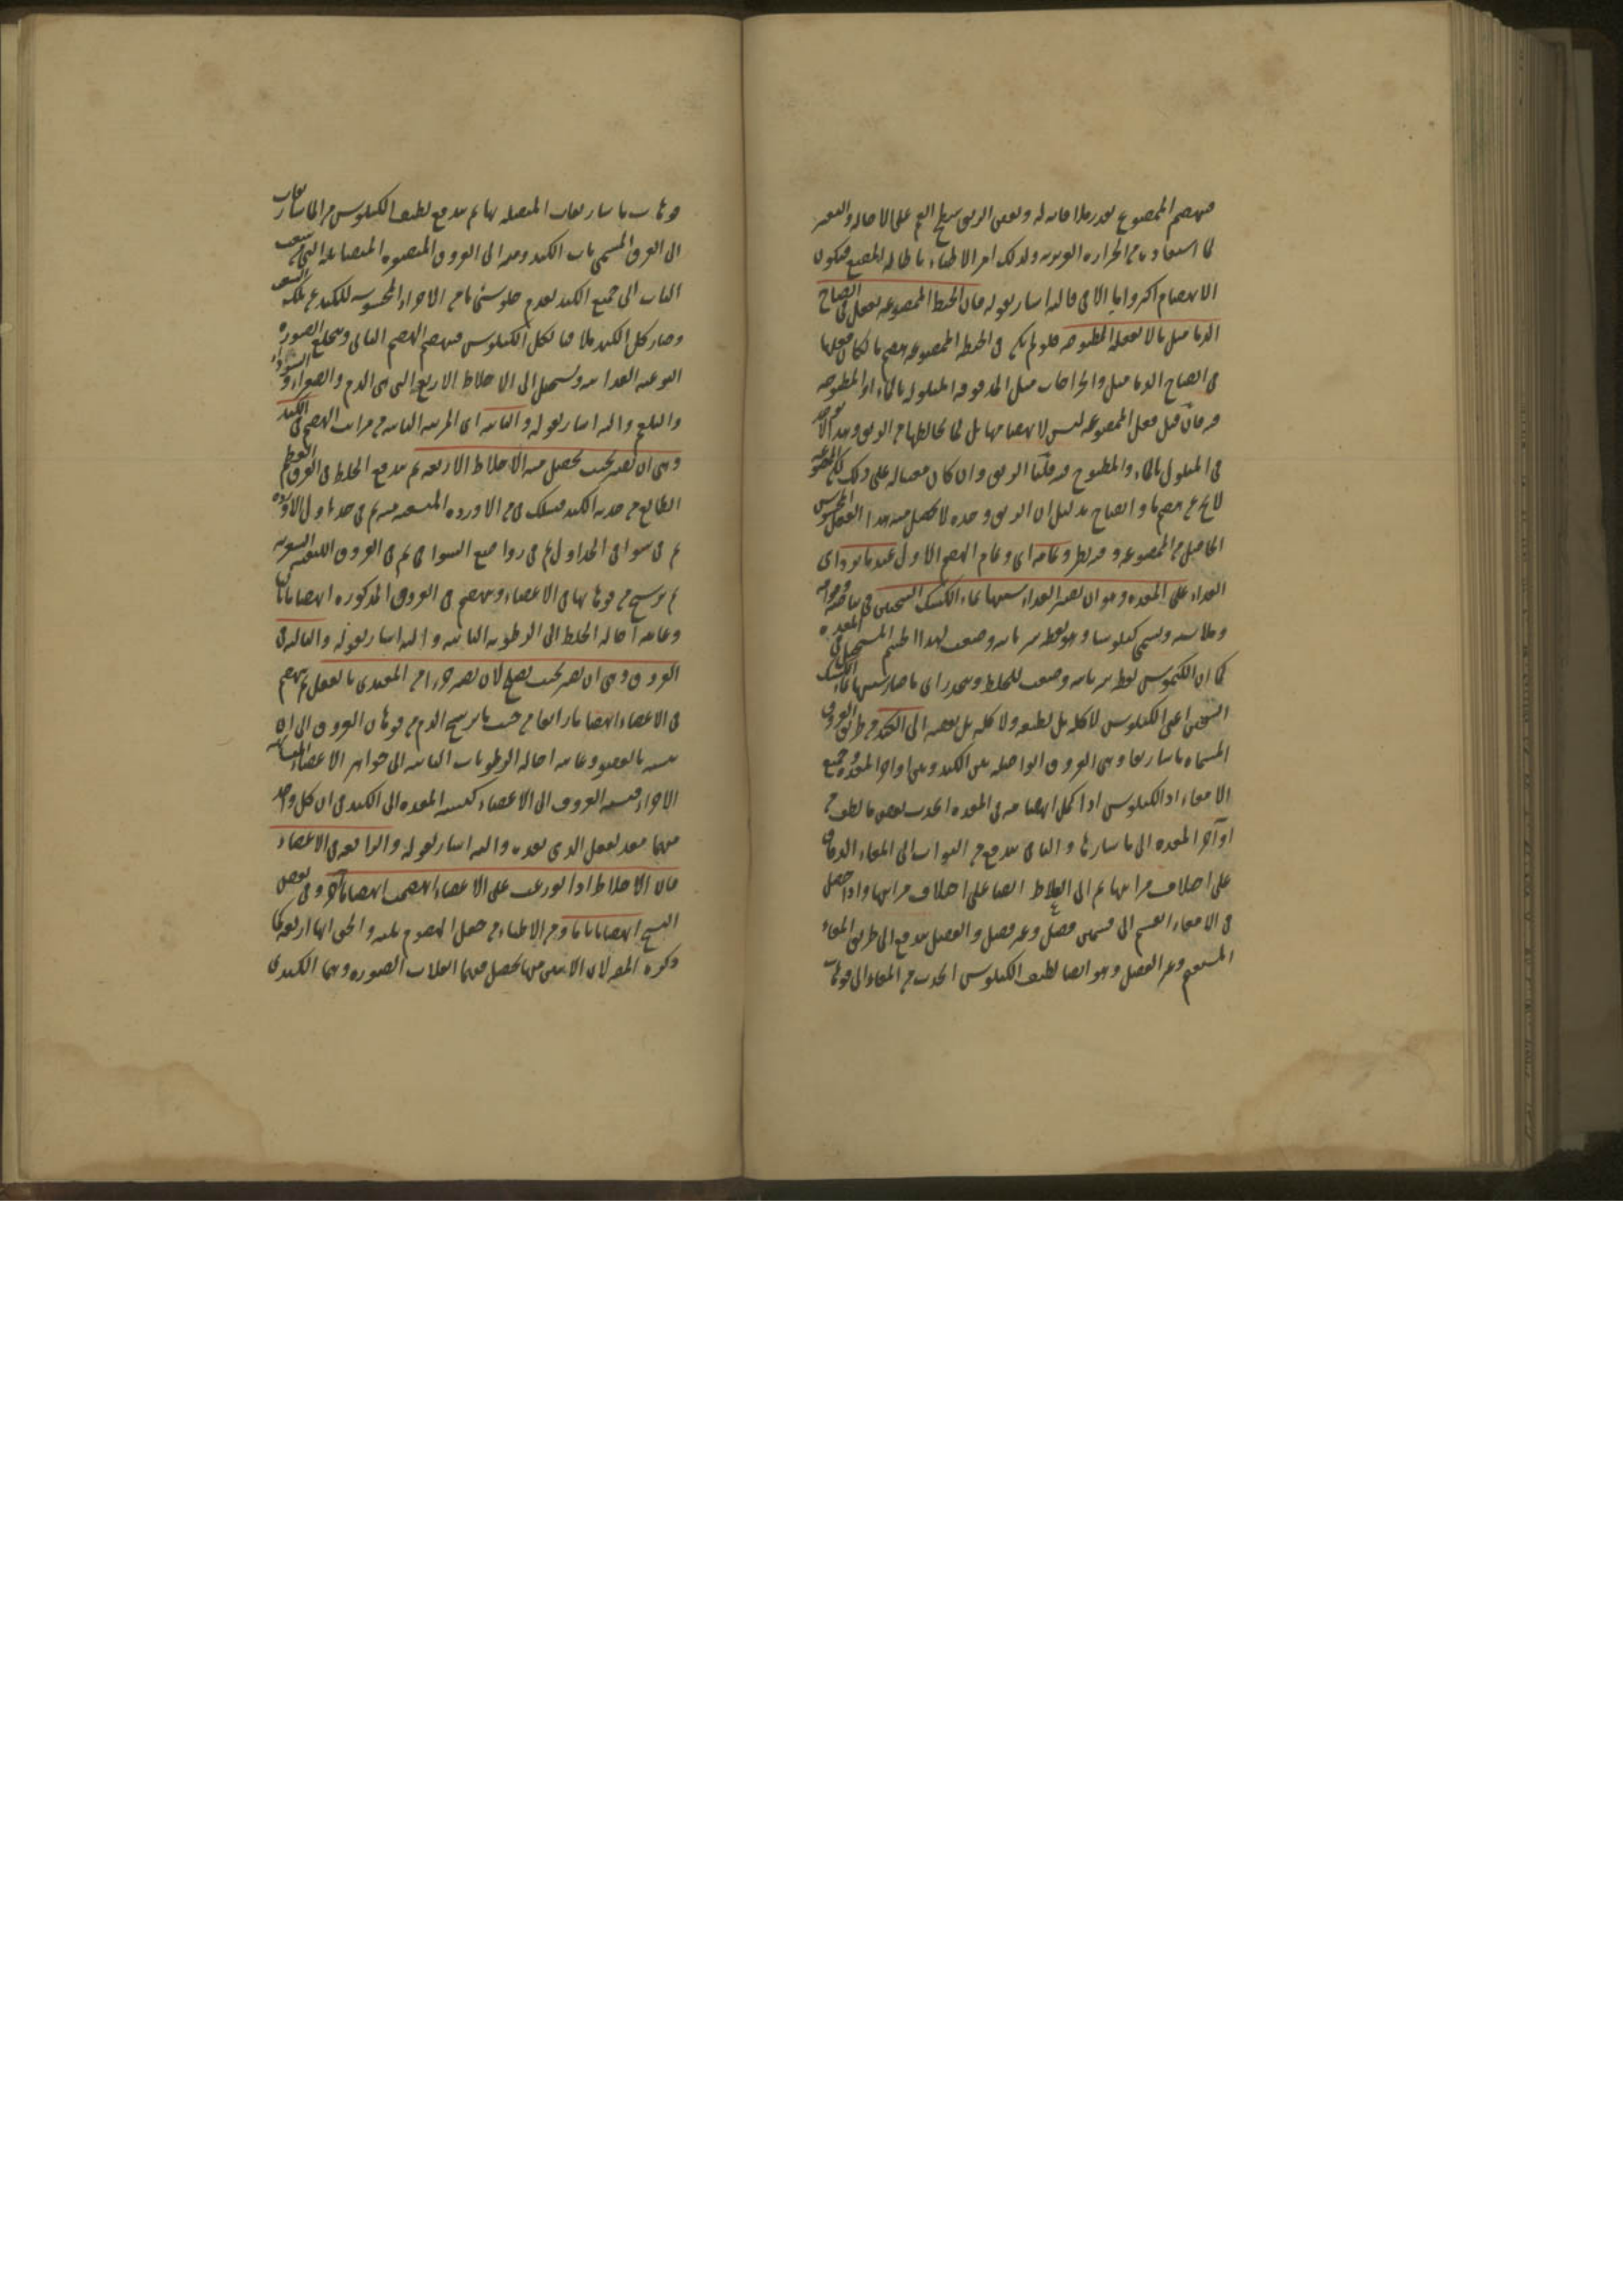 فينهضم الممضوغ بقدر ملاقاته له وبعض الريق سطح الفم على الاحالة والتغير
لما استفاد بها من الحرارة الغريزية ولذلك امر الاطباء باطالة المضغ فيكون
الانهضام اكثر واما الاني فاليه اشار بقوله فان الحنطة الممضوغة تفعل في انضاج
الدماميل ما لا تفعله المطبوخة فلو لم يكن في الحنطة الممضوغة هضم ما لكان فعلها
في انضاج الدماميل والخراجات مثل المدقوقة المبلولة بالماء او المطبوخة
فيه فان قيل فعل الممضوغة ليس لانهضامها بل لما يخالطها من الريق وهذا لا يوجد
في المبلول بالماء والمطبوخ فيه قلنا الريق وان كان معينا له على ذلك لكن الممضوغة
لا تخ عن هضم ما وانضاج بدليل ان الريق وحده لا يحصل منه هذا الفعل المحسوس
الحاصل من الممضوغة وفيه نظر وتمامه اى وتمام الهضم الاول عند ما يرد اى
الغذاء على المعدة وهو ان يصير الغذاء شبيها بماء الكشك الثخين في بياضه وقوامه
وملاسته ويسمى كيلوسا وهو لفظ سريانية وضعت لهذا الطعم المستحيل في المعدة
كما ان الكيموس لفظ سريانية وضعت للخلط وينحدر اى ما صار شبيها بماء الكشك
الثخين اعنى الكيلوس لا كله بل لطيفه ولا كله بل بعضه الى الكبد من طريق العروق
المسماة ماساريقا وهي العروق الواصلة بين الكبد وبين اواخر المعدة وجميع
الامعاء اذ الكيلوس اذا كمل انهضامه في المعدة انجذب بعض ما لطف من
اواخر المعدة الى ماسارها والباقى يندفع من البواب الى المعاء الدقاق
على اختلاف مراتبها ثم الى الغلاظ ايضا على اختلاف مراتبها واذا حصل
في الامعاء انقسم الى قسمين فضل وغير فضل والفضل يندفع الى طريق المعاء
المستقيم وغير الفضل وهو ايضا لطيف الكيلوس انجذب من المعاء الى فوهات
فوهات ماساريقات المتصلة بها ثم يندفع لطيف الكيلوس من الماساريقات
الى العرق المسمى باب الكبد ومنه الى العروق الصغيرة المتضائلة التي تتشعب
الباب الى جميع الكبد لعدم خلو شئ ما من الاجزاء المحسوسة للكبد عن تلك الشعب
وصار كل الكبد ملاقيا لكل الكيلوس فينهضم الهضم الثانى وينخلع الصورة
النوعية الغذائية ويستحيل الى الاخلاط الاربع التي هي الدم والصفراء والسوداء
والبلغم واليه اشار بقوله والثانية اى المرتبة الثانية من مراتب الهضم في الكبد
وهي ان تصير بحيث يحصل منه الاخلاط الاربعة ثم يندفع الخلط في العرق العظيم
الطالع من حدبة الكبد فيسلك في من الاوردة المتشعبة منه ثم في جداول الاوردة
ثم في سواقى الجداول ثم في رواضع السواقى ثم في العروق الليفية الشعرية
ثم يرشح من فوهاتها في الاعضاء وينهضم في العروق المذكورة انهضاما ثالثا
وغايته احالة الخلط الى الرطوبة الثانية واليه اشار بقوله والثالثة في
العروق وهي ان تصير بحيث يصلح لان يصير جزءا من المغتذى بالفعل ثم ينهضم
في الاعضاء انهضاما رابعا من حيث ما يرشح الدم من فوهات العروق الى ان
يشبه بالعضو وغايته احالة الرطوبات الثانية الى جواهر الاعضاء المتشابهة
الاجزاء فنسبة العروق الى الاعضاء كنسبة المعدة الى الكبد في ان كل واحد
منهما معد لفعل الذى بعده واليه اشار بقوله والرابعة في الاعضاء
فان الاخلاط اذا توزعت على الاعضاء انهضمت انهضاما آخر وفي بعض
النسخ انهضاما تاما ومن الاطباء من جعل الهضوم ثلثة والحق انها اربعة كما
ذكره المصـ لان الاثنين منها يحصل فيهما انقلاب الصورة وهما الكبدى